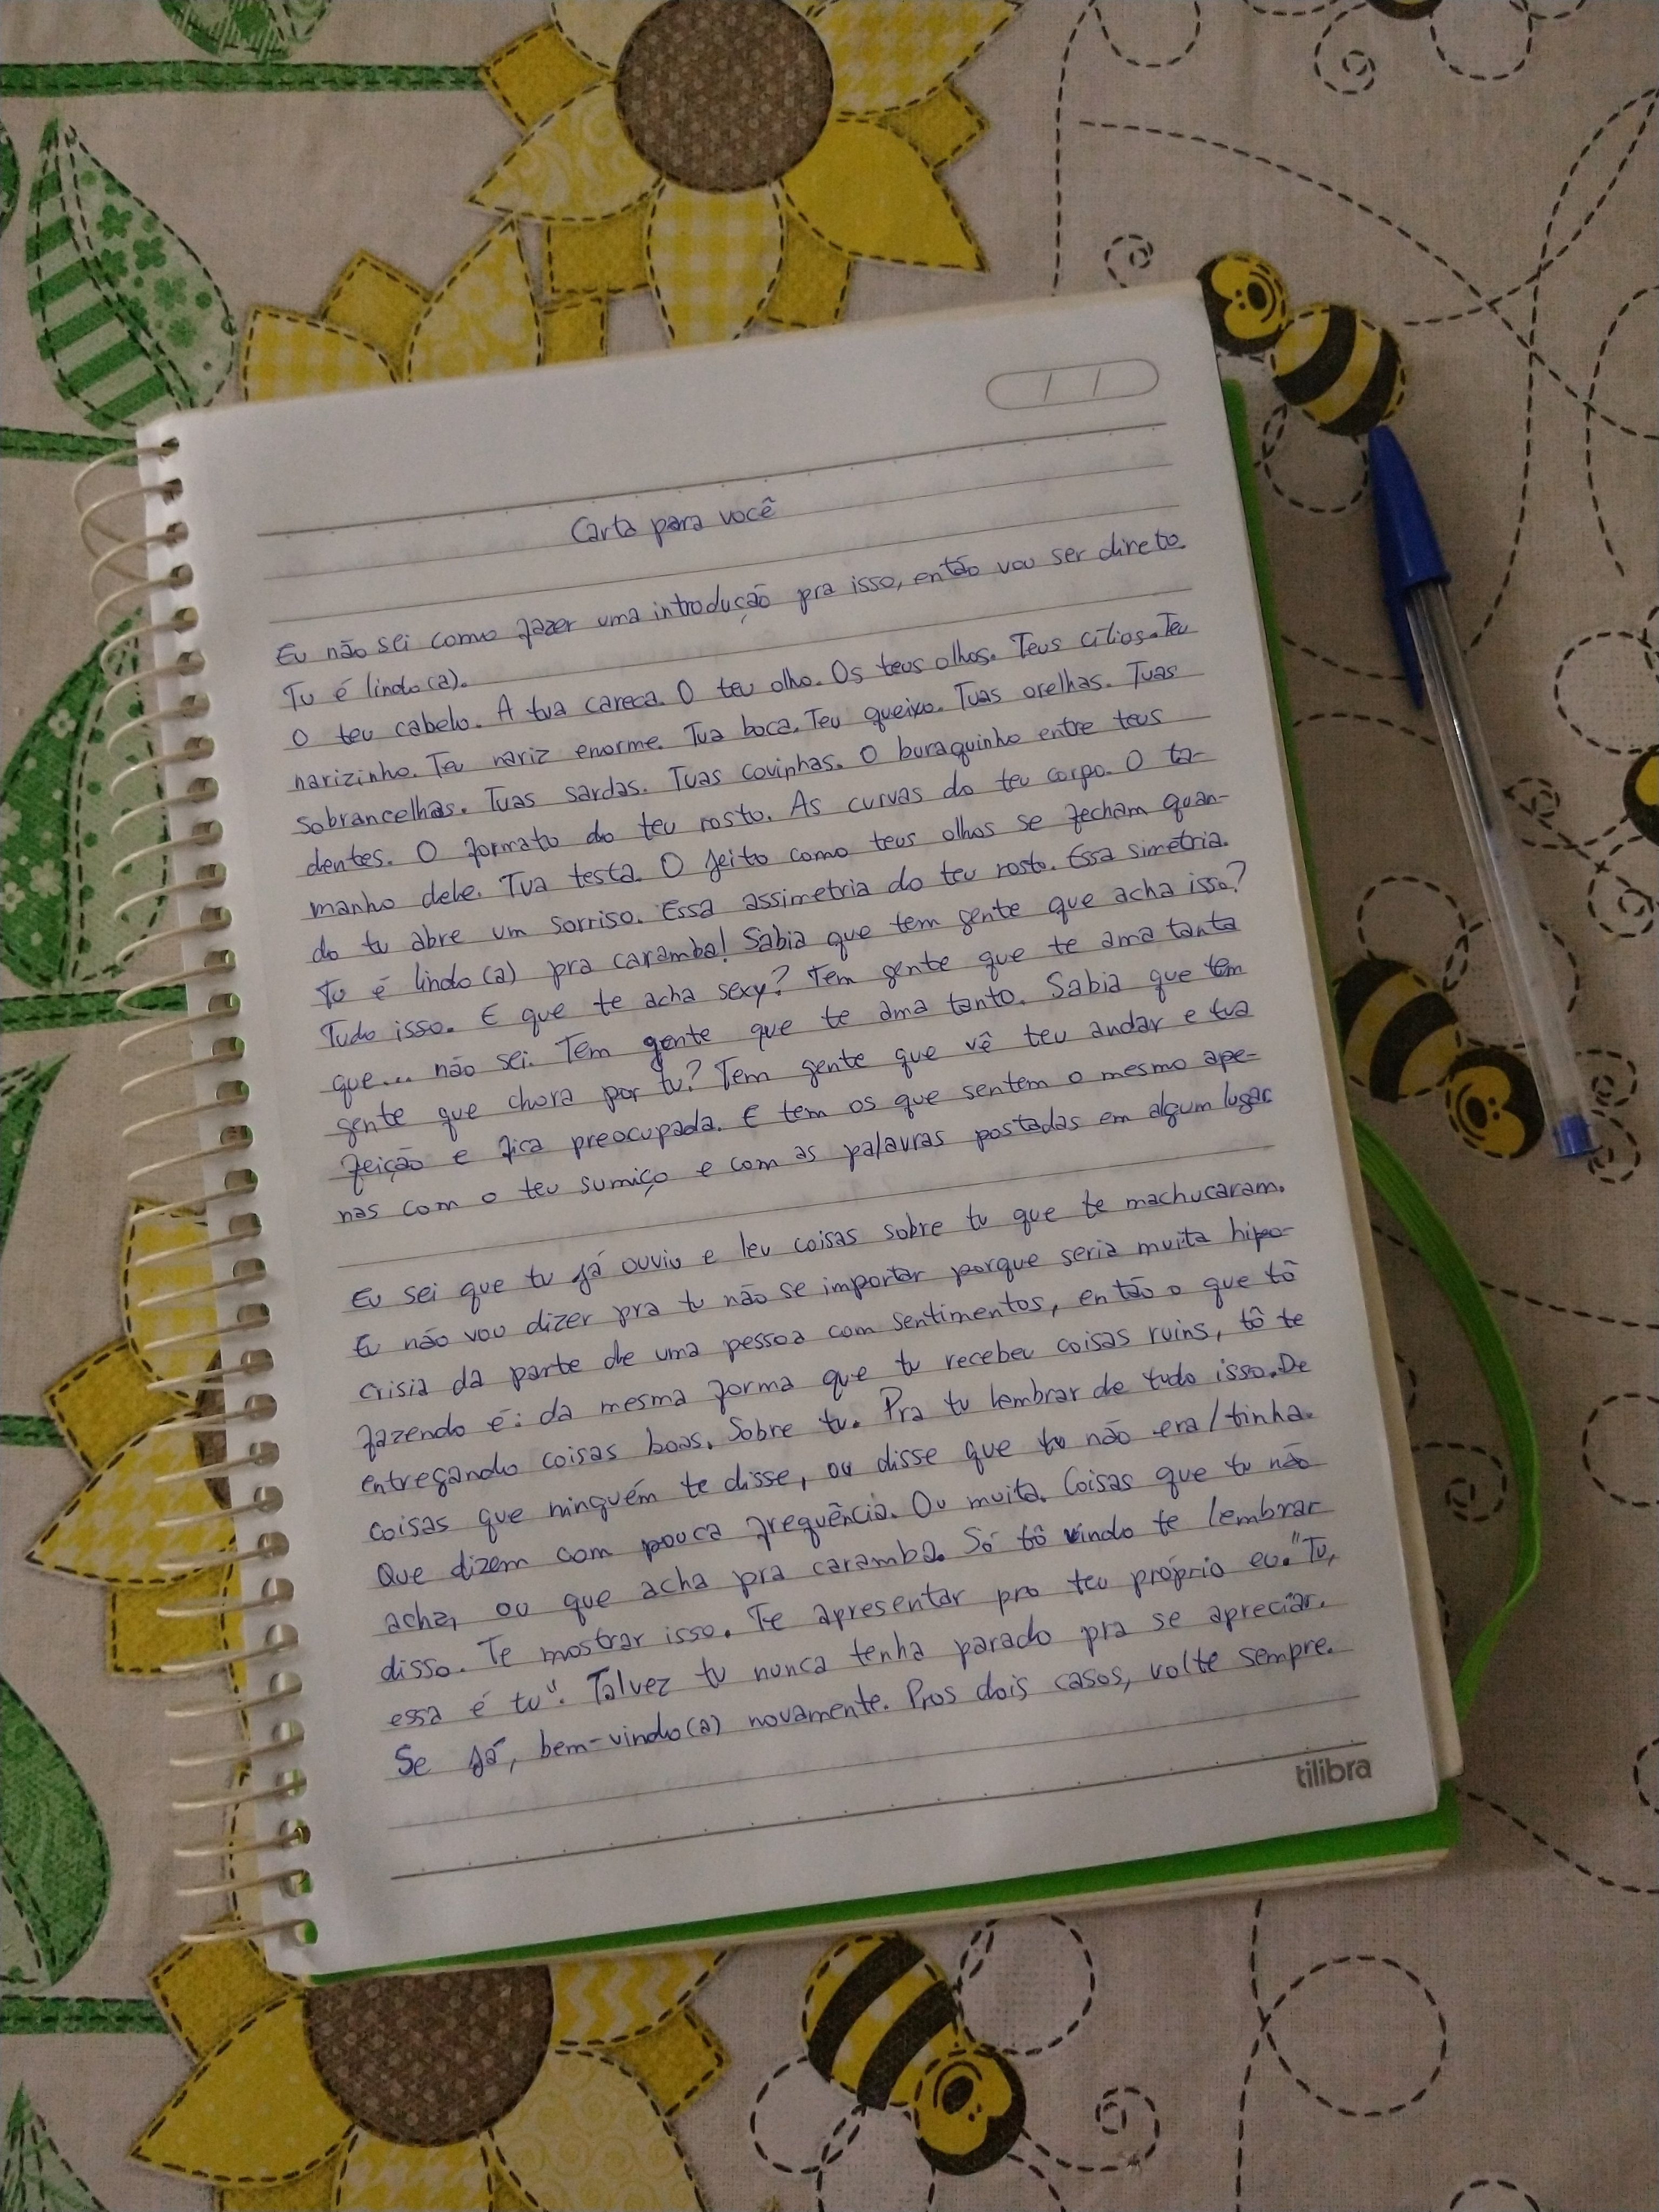 Carta para você
Eu não sei como fazer uma introdução pra isso, então vou ser direto.
Tu é lindo(a).
O teu cabelo. A tua careca. O teu olho. Os teus olhos. Teus cílios. Teu
narizinho. Teu nariz enorme. Tua boca. Teu queixo. Tuas orelhas. Tuas
sobrancelhas. Tuas sardas. Tuas covinhas. O buraquinho entre teus
dentes. O formato do teu rosto. As curvas do teu corpo. O ta-
manho dele. Tua testa. O jeito como teus olhos se fecham quan-
do tu abre um sorriso. Essa assimetria do teu rosto. Essa simetria.
Tu é lindo(a) pra caramba! Sabia que tem gente que acha isso?
Tudo isso. E que te acha sexy? Tem gente que te ama tanta
que... não sei. Tem gente que te ama tanto. Sabia que tem
gente que chora por tu? Tem gente que vê teu andar e tua
feição e fica preocupada. E tem os que sentem o mesmo ape-
nas com o teu sumiço e com as palavras postadas em algum lugar.
Eu sei que tu já ouviu e leu coisas sobre tu que te machucaram.
Eu não vou dizer pra tu não se importar porque seria muita hipo-
crisia da parte de uma pessoa com sentimentos, então o que tô
fazendo é: da mesma forma que tu recebeu coisas ruins, tô te
entregando coisas boas. Sobre tu. Pra tu lembrar de tudo isso. De
coisas que ninguém te disse, ou disse que tu não era/tinha.
Que dizem com pouca frequência. Ou muita. Coisas que tu não
acha, ou que acha pra caramba. Só tô vindo te lembrar
disso. Te mostrar isso. Te apresentar pro teu próprio eu. "Tu,
essa é tu". Talvez tu nunca tenha parado pra se apreciar.
Se já, bem-vindo(a) novamente. Pros dois casos, volte sempre.
tilibra